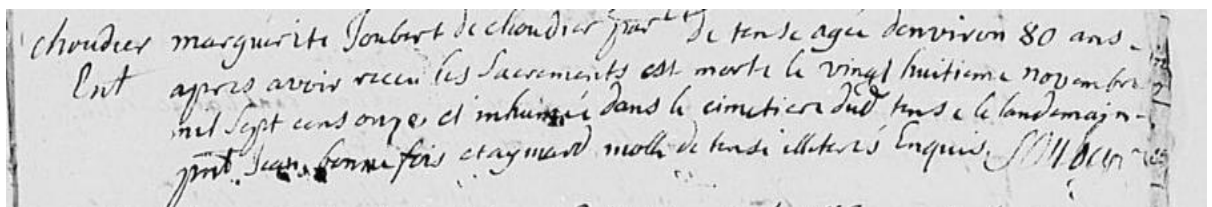 choudier marguerite Joubert de choudier par^sse de tense agée denviron 80 ans
Ent apres avoir receu les sacrements est morte le vingt huitieme novembre
mil sept cens onze et inhumée dans le cimetiere dud tense le landemain
pnt Jean bonnefois et aymard molle de tense illeterés Enquis